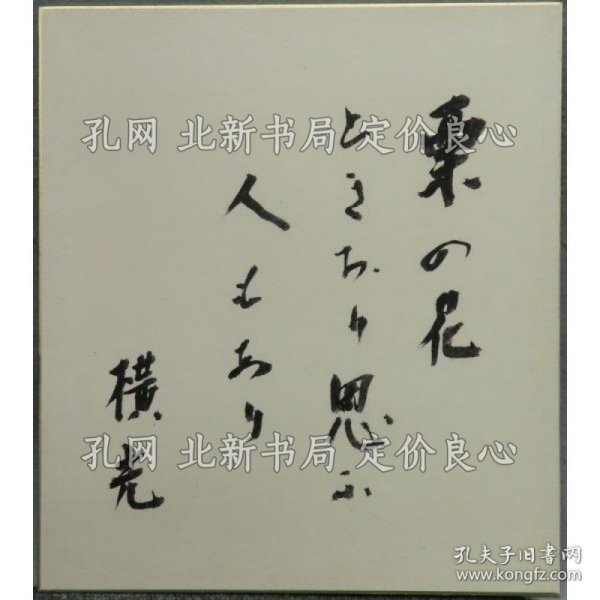 栗の花
ときをり思ふ
人もあり
横光
孔网 北新书局 定价良心
孔网 北新书局 定价良心
孔夫子旧书网
www.kongfz.com